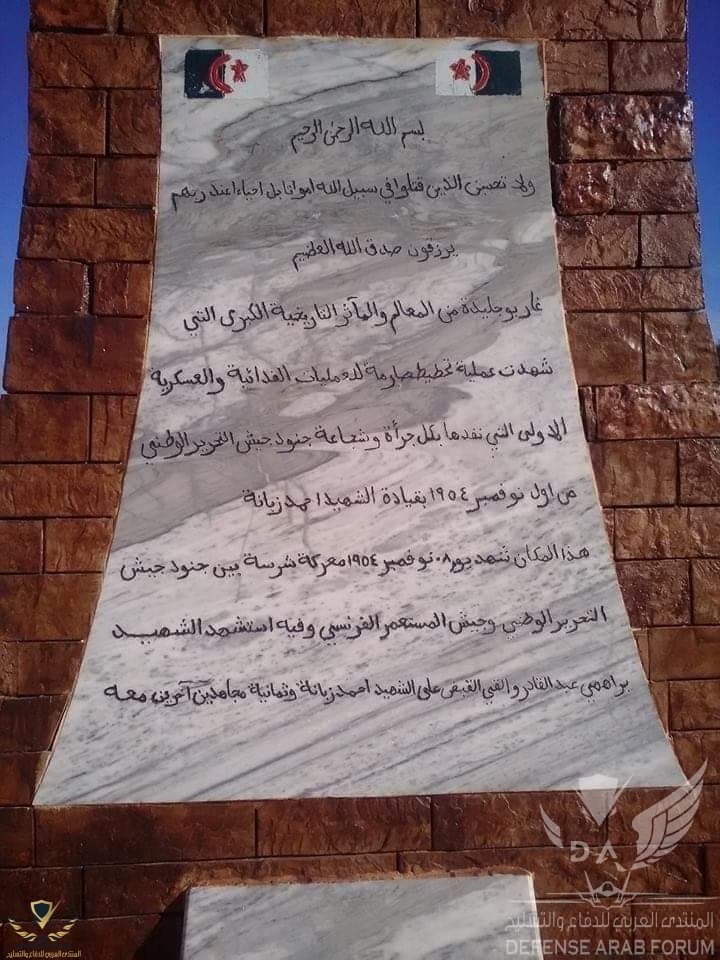 بسم الله الرحمن الرحيم
ولا تحسبن الذين قتلوا في سبيل الله امواتا بل احياء عند ربهم
يرزقون صدق الله العظيم
غار بوجليدة من المعالم والمآثر التاريخية الكبرى التي
شهدت عملية تخطيط صارمة للعمليات الفدائية والعسكرية
الاولى التي نفدها بكل جرأة وشجاعة جنود جيش التحرير الوطني
من اول نوفمبر ١٩٥٤ بقيادة الشهيد احمد زبانة
هذا المكان شهد يوم ٠٨ نوفمبر ١٩٥٤ معركة شرسة بين جنود جيش
التحرير الوطني وجيش المستعمر الفرنسي وفيه استشهد الشهيد
براهمي عبد القادر والقي القبض على الشهيد احمد زبانة وثمانية مجاهدين آخرين معه
DA
المنتدى العربي للدفاع والتسليح
DEFENSE ARAB FORUM
المنتدى العربي للدفاع والتسليح